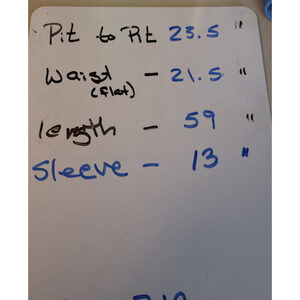 Pit to Pit 23.5 "
Waist - 21.5 "
(flat)
length - 59 "
Sleeve - 13 "